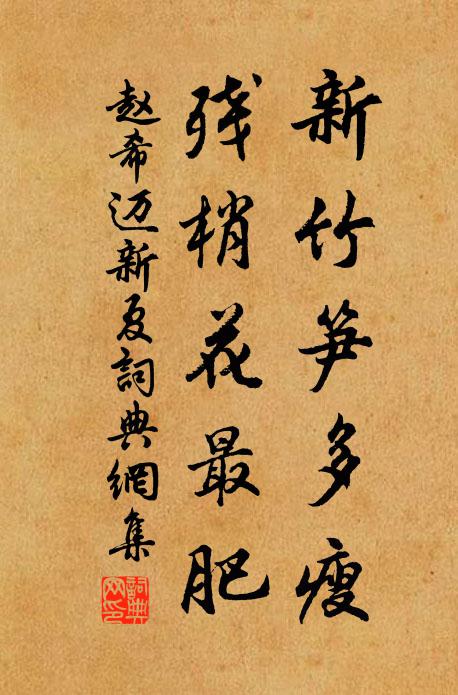 新竹笋多瘦
残梢花最肥
赵希迈新夏詞典網集
詞典网印